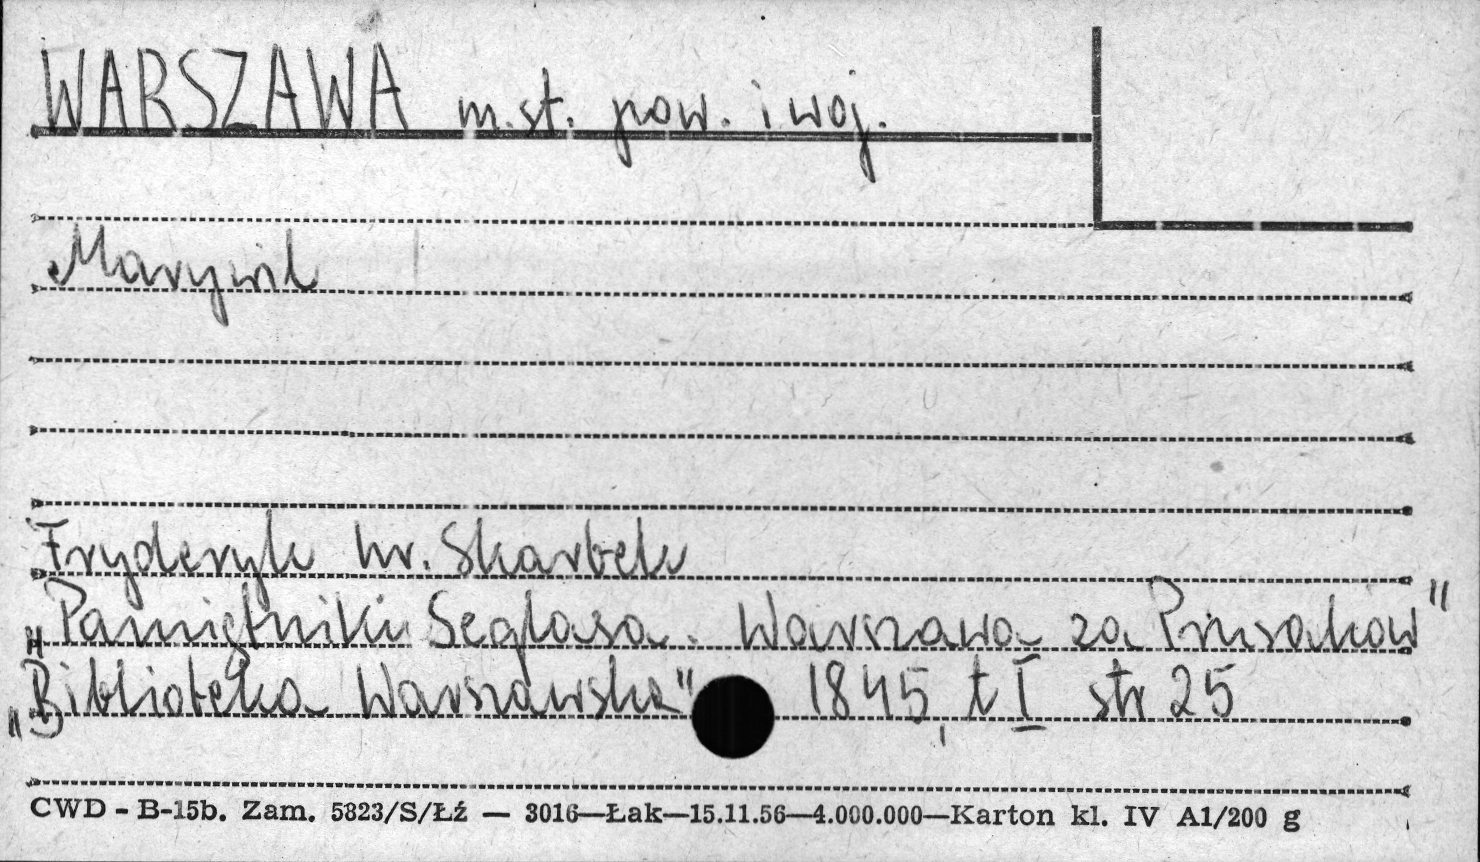 WARSZAWA m.st. pow. i woj.
Marywil
Fryderyk hr. Skarbek
„Pamiętniki Seglasa. Warszawa za Prusaków"
„Biblioteka Warszawska" 1845, t I str 25
CWD - B-15b. Zam. 5823/S/Łź — 3016—Łak—15.11.56—4.000.000—Karton kl. IV A1/200 g